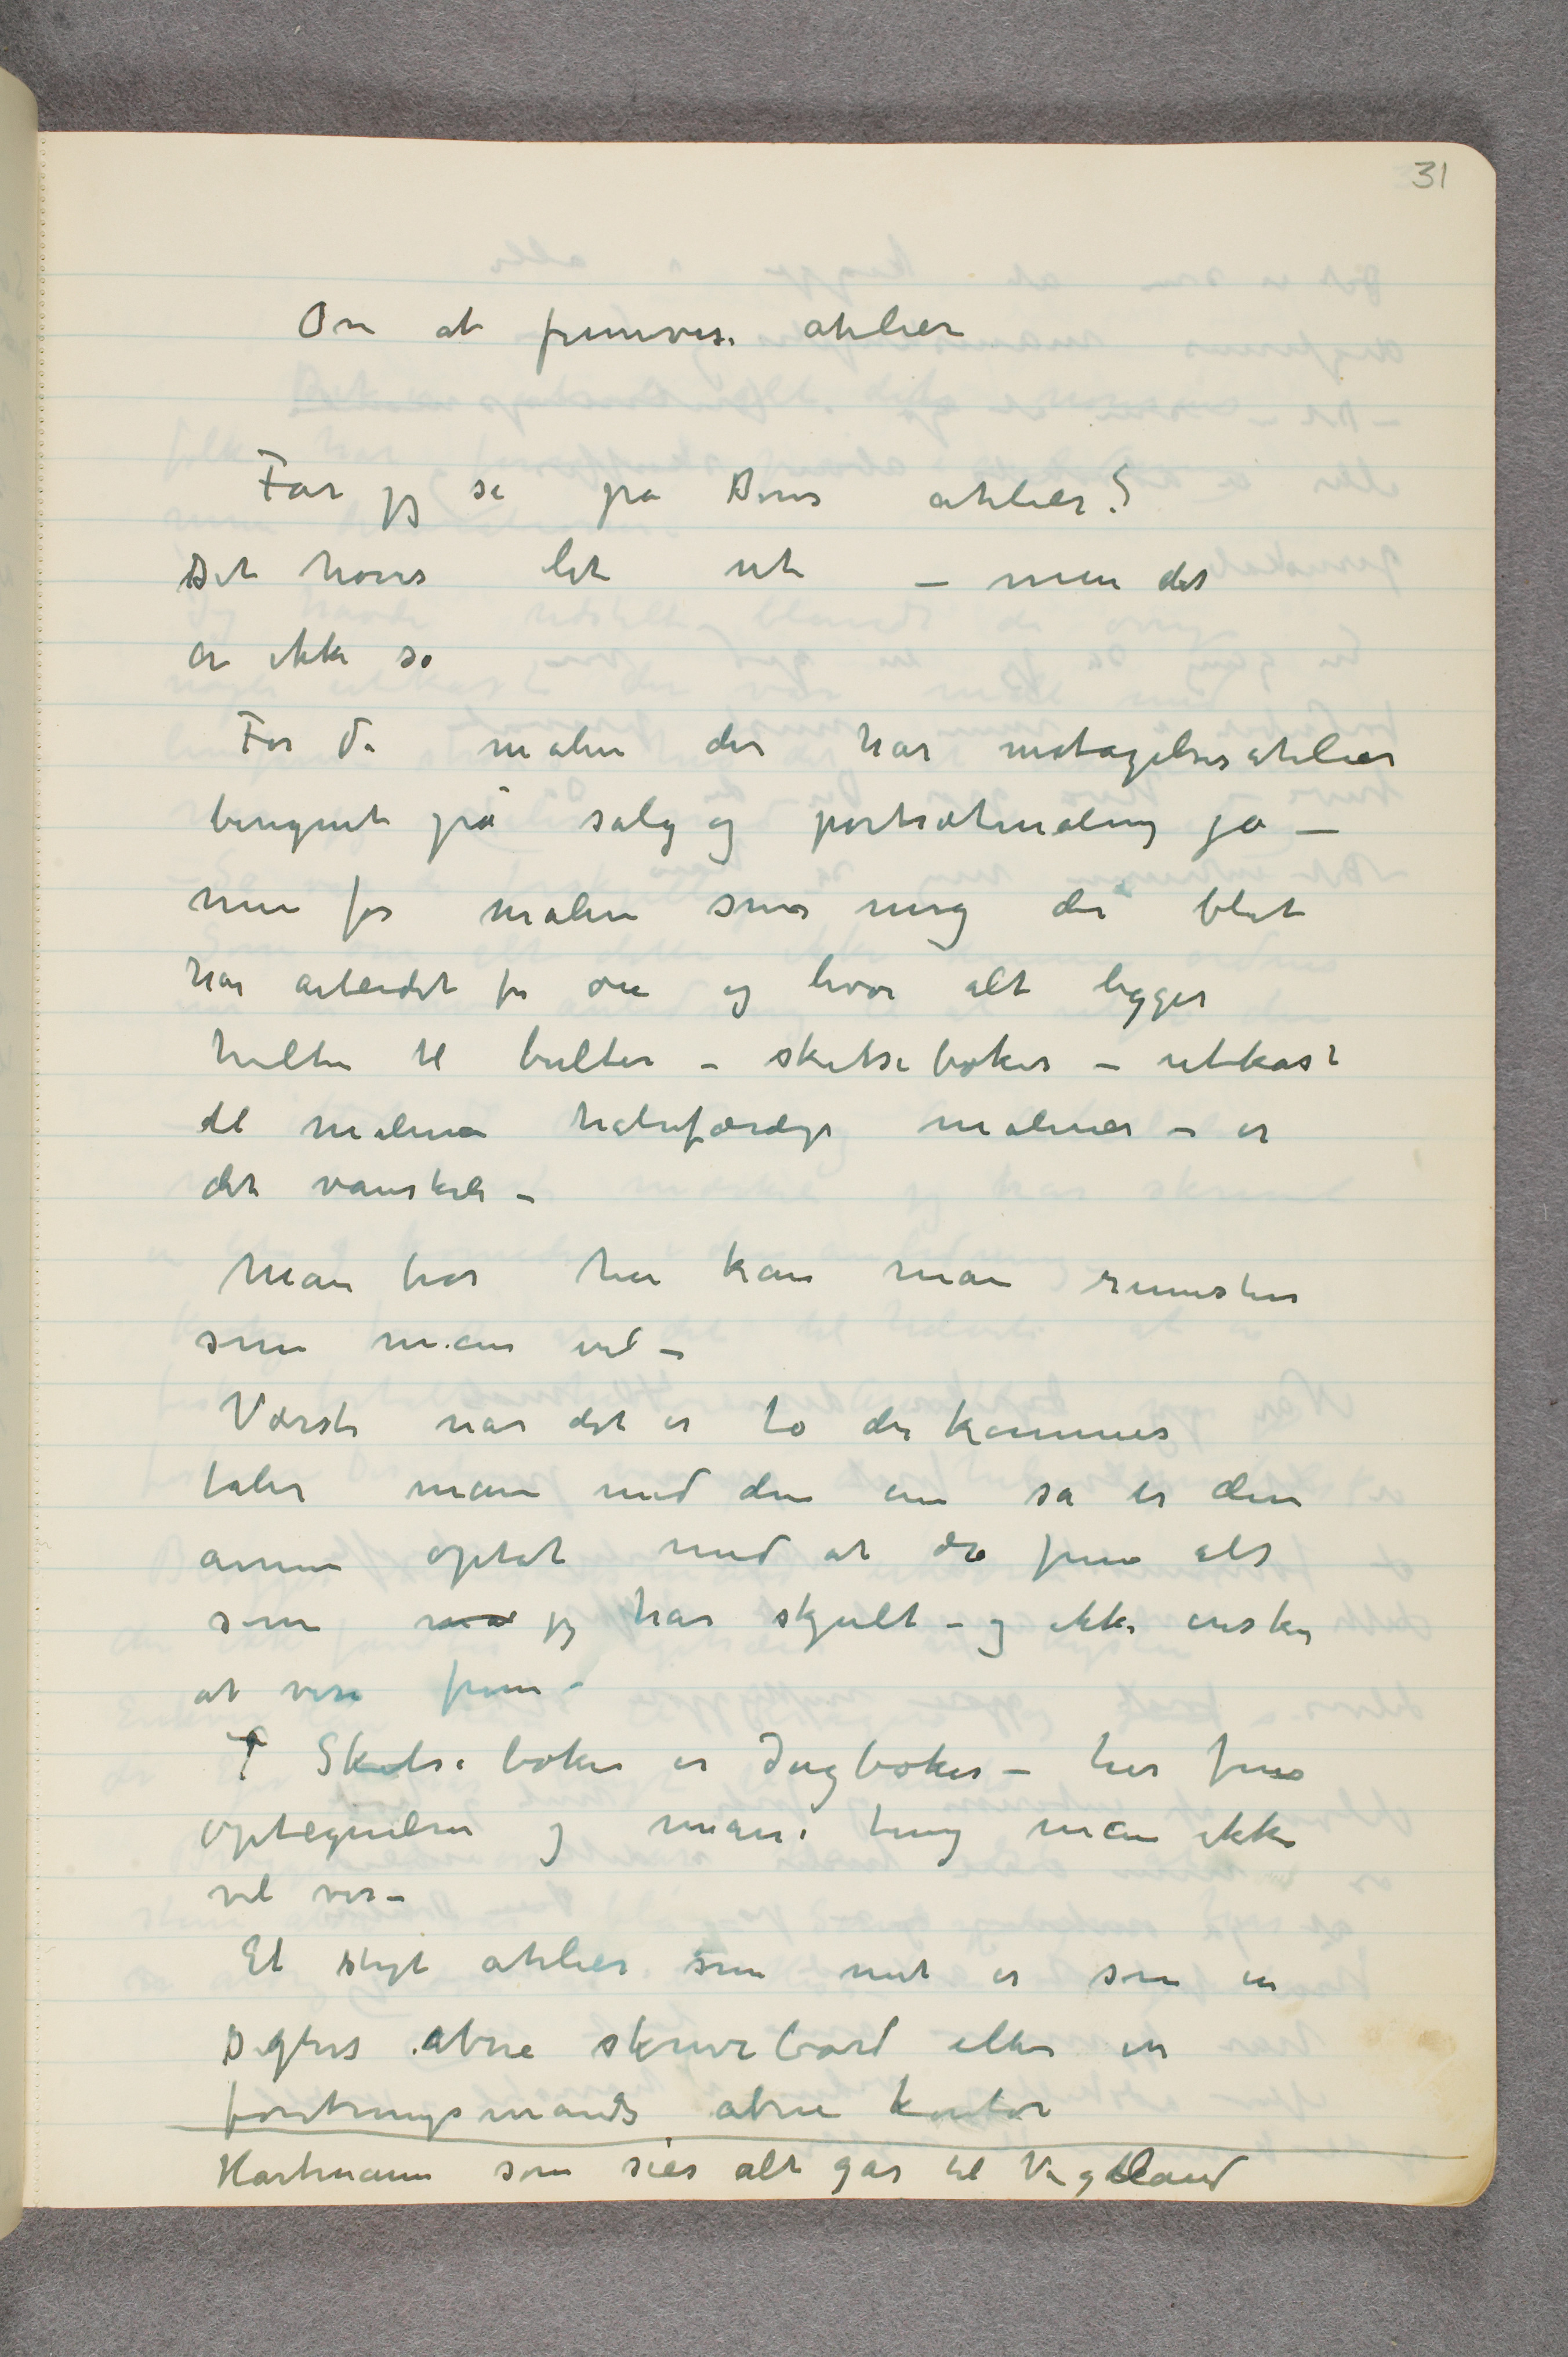 31
Om at fremvise atelier
Får jeg se på Deres atelier?
Det høres let ut – men det
er ikke så
For de malere der har motagelsesatelier
beregnet på salg og portrætmaling ja –
men for malere som mig der blot
har arbeidet for øie og hvor alt ligger
hulter til bulter – skitsebøker – utkast
til malerier halvfærdige malerier – er
det vanskelig –
Man tror her kan man runstere
som man vil –
Værst når det er to der kommer
taler man med den ene så er den
anden optat med at dra frem alt
som jeg har skjult – og ikke ønsker
at vise frem –
Skitsebøker er Dagbøker – her fins
optegnelser og mange ting man ikke
vil vise –
Et sligt atelier som mit er som en
Digters åbne skrivebord eller en
foretningsmands åbne kontor
Hartmann som sier alt går til Vigeland